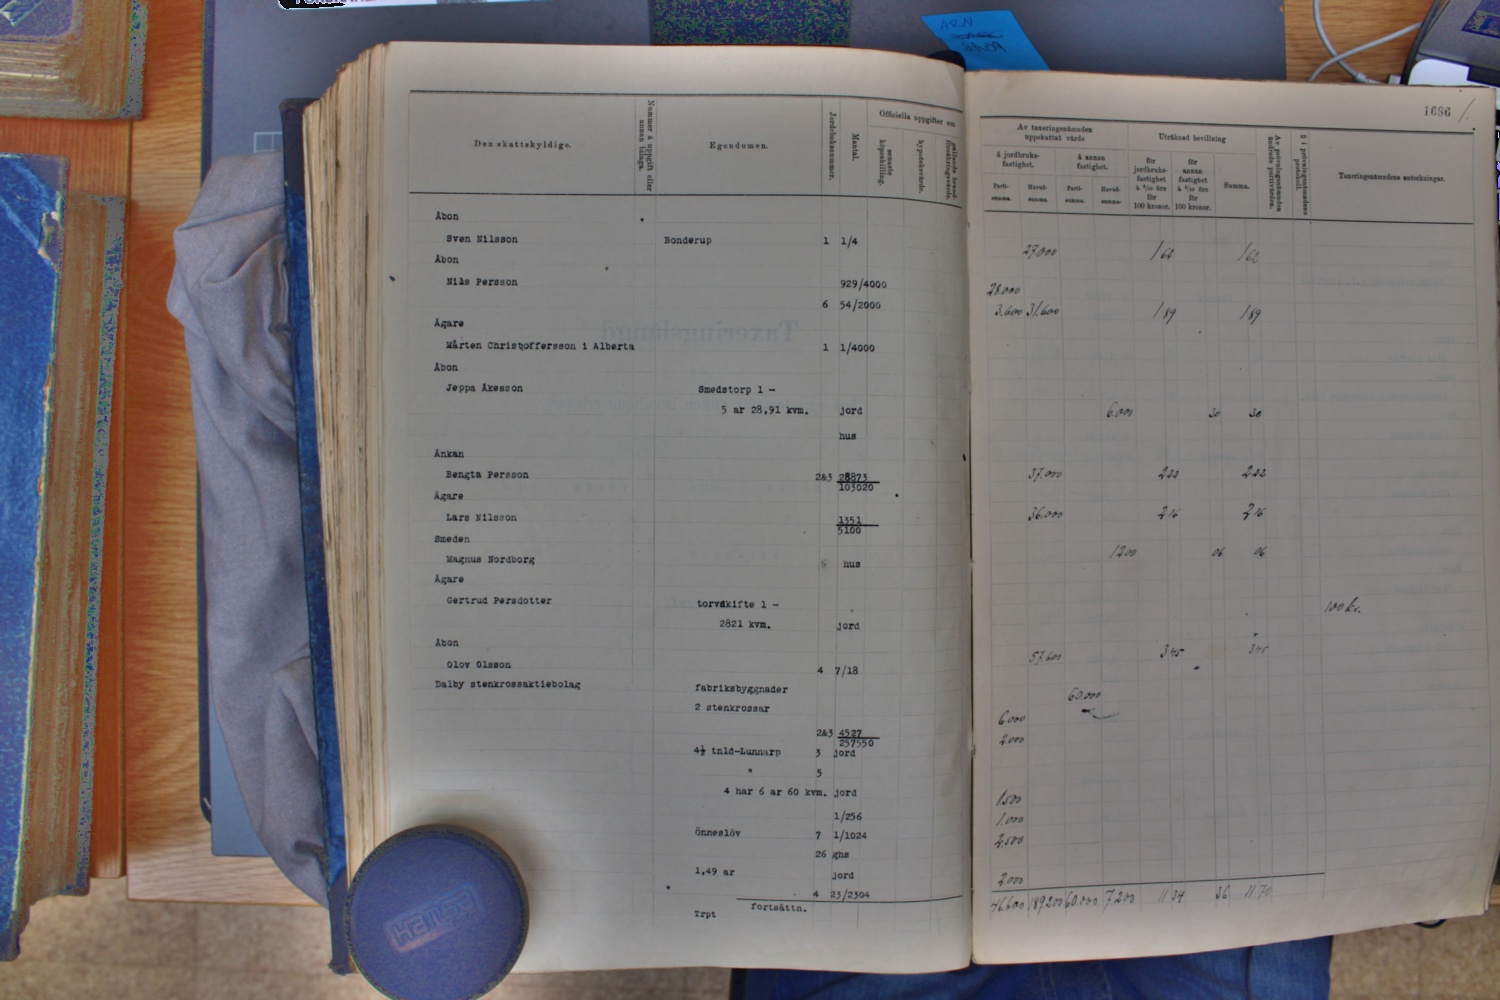 Officiella uppgifter om
Den skattskyldige.
Nummer å uppgift eller annan bilaga.
Egendomen.
Jordeboksnummer.
Mantal.
senaste köpeskilling.
hypoteksvärde.
gällande brandförsäkringsvärde.
Åbon
Sven Nilsson Bonderup 1 1/4
Åbon
Nils Persson 929/4000
6 54/2000
Ägare
Mårten Christoffersson i Alberta 1 1/4000
Åbon
Jeppa Åkesson Smedstorp 1 -
5 ar 28,91 kvm. jord
hus
Änkan
Bengta Persson 2&3 28873
103020
Ägare
Lars Nilsson 1351
5100
Smeden
Magnus Nordborg 6 hus
Ägare
Gertrud Persdotter torvskifte 1 -
2821 kvm. jord
Åbon
Olov Olsson 4 7/18
Dalby stenkrossaktiebolag fabriksbyggnader
2 stenkrossar
2&3 4527
257550
4½ tnld-Lunnarp 3 jord
" 5
4 har 6 ar 60 kvm. jord
1/256
Önneslöv 7 1/1024
26 ghs
1,49 ar jord
4 23/2304
Trpt fortsättn.
1686
Av taxeringsnämnden uppskattat värde
Uträknad bevillning
å jordbruksfastighet.
å annan fastighet.
för jordbruksfastighet à 6/10 öre för 100 kronor.
för annan fastighet à 5/10 öre för 100 kronor.
Summa.
Av prövningsnämnden ändrade partivärden.
§ i prövningsnämndens protokoll.
Taxeringsnämndens anteckningar.
Partisumma.
Huvudsumma.
Partisumma.
Huvudsumma.
27.000 1 62 1 62
28.000
3.600 31.600 1 89 1 89
6.000 30 30
37.000 2 22 2 22
36.000 2 16 2 16
1200 06 06
100 kr.
57.600 3 45 3 45
60.000
6.000
2.000
1.500
1.000
2.500
2.000
46.600 189200 60.000 7.200 11 34 36 11 70